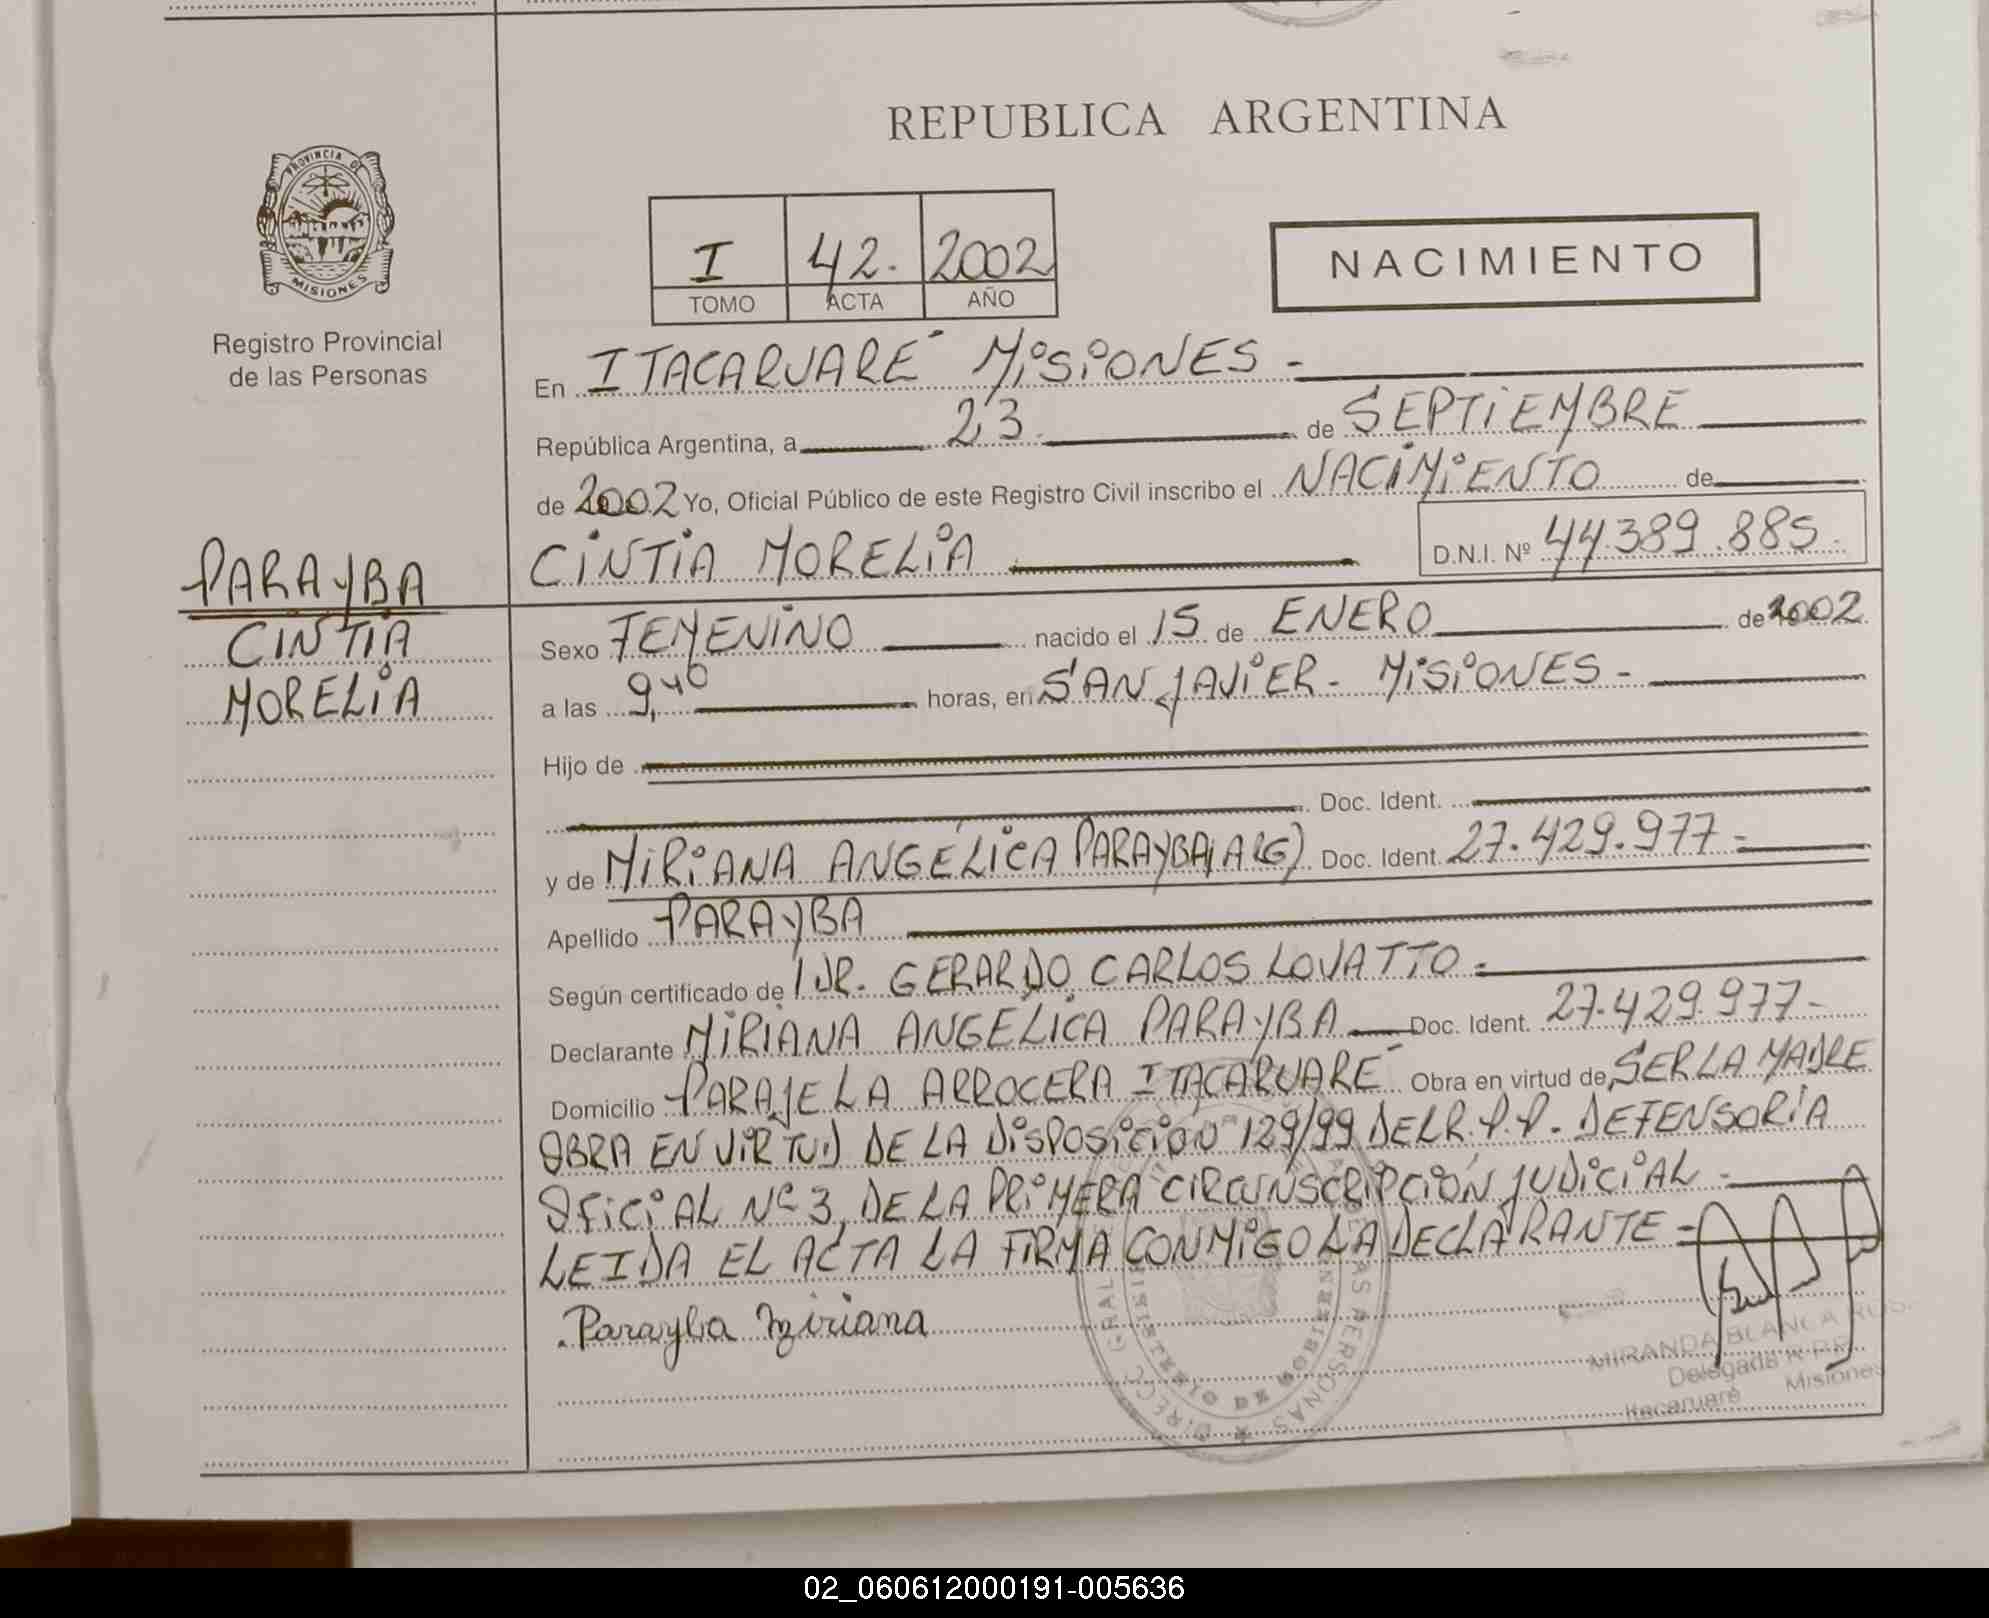 REPUBLICA ARGENTINA
PROVINCIA DE
MISIONES
Registro Provincial
de las Personas
I 42. 2002
TOMO ACTA AÑO
NACIMIENTO
En ITACARUARE MiSiONES -
República Argentina, a 23 de SEPTiEMBRE
de 2002 Yo, Oficial Público de este Registro Civil inscribo el NACiMiENTO de
CiNTiA MORELiA D.N.I. Nº 44.389.885.
PARAYBA
CINTIA
MORELiA
Sexo FEMENiNO nacido el 15 de ENERO de 2002
a las 9,40 horas, en SAN JAViER - MiSiONES -
Hijo de
Doc. Ident.
y de MiRiANA ANGÉLiCA PARAYBA(ARG) Doc. Ident. 27.429.977-
Apellido PARAYBA
Según certificado de DR. GERARDO CARLOS LOVATTO -
Declarante MiRIANA ANGÉLiCA PARAYBA Doc. Ident. 27.429.977-
Domicilio PARAJE LA ARROCERA ITACARUARE Obra en virtud de SER LA MADRE
OBRA EN ViRTUD DE LA DiSPOSiCiÓN 129/99 DEL R.P.P. DEFENSORiA
OFiCiAL Nº 3, DE LA PRiMERA CIRCUNSCRiPCiÓN JUDiCiAL -
LEIDA EL ACTA LA FiRMA CONMiGO LA DECLARANTE -
Parayba Miriana
DIRECC GRAL PERSONAS
MINISTERIO DE GOBIERNO
MIRANDA BLANCA ROS
Delegada R.P.P.
Itacaruaré Misiones
02_060612000191-005636